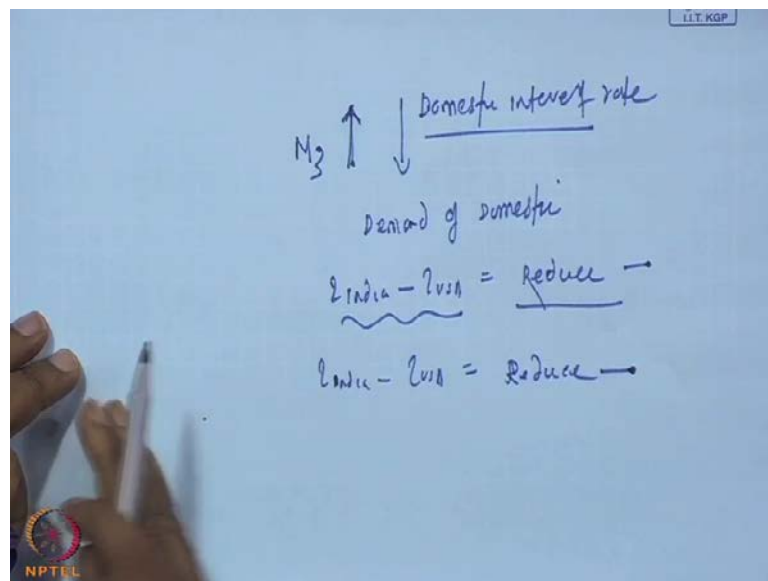 I.I.T. KGP
M3 ↑ ↓ Domestic interest rate
Demand of Domestic
rIndia - rUSA = Reduce -
rIndia - rUSA = Reduce -
NPTEL